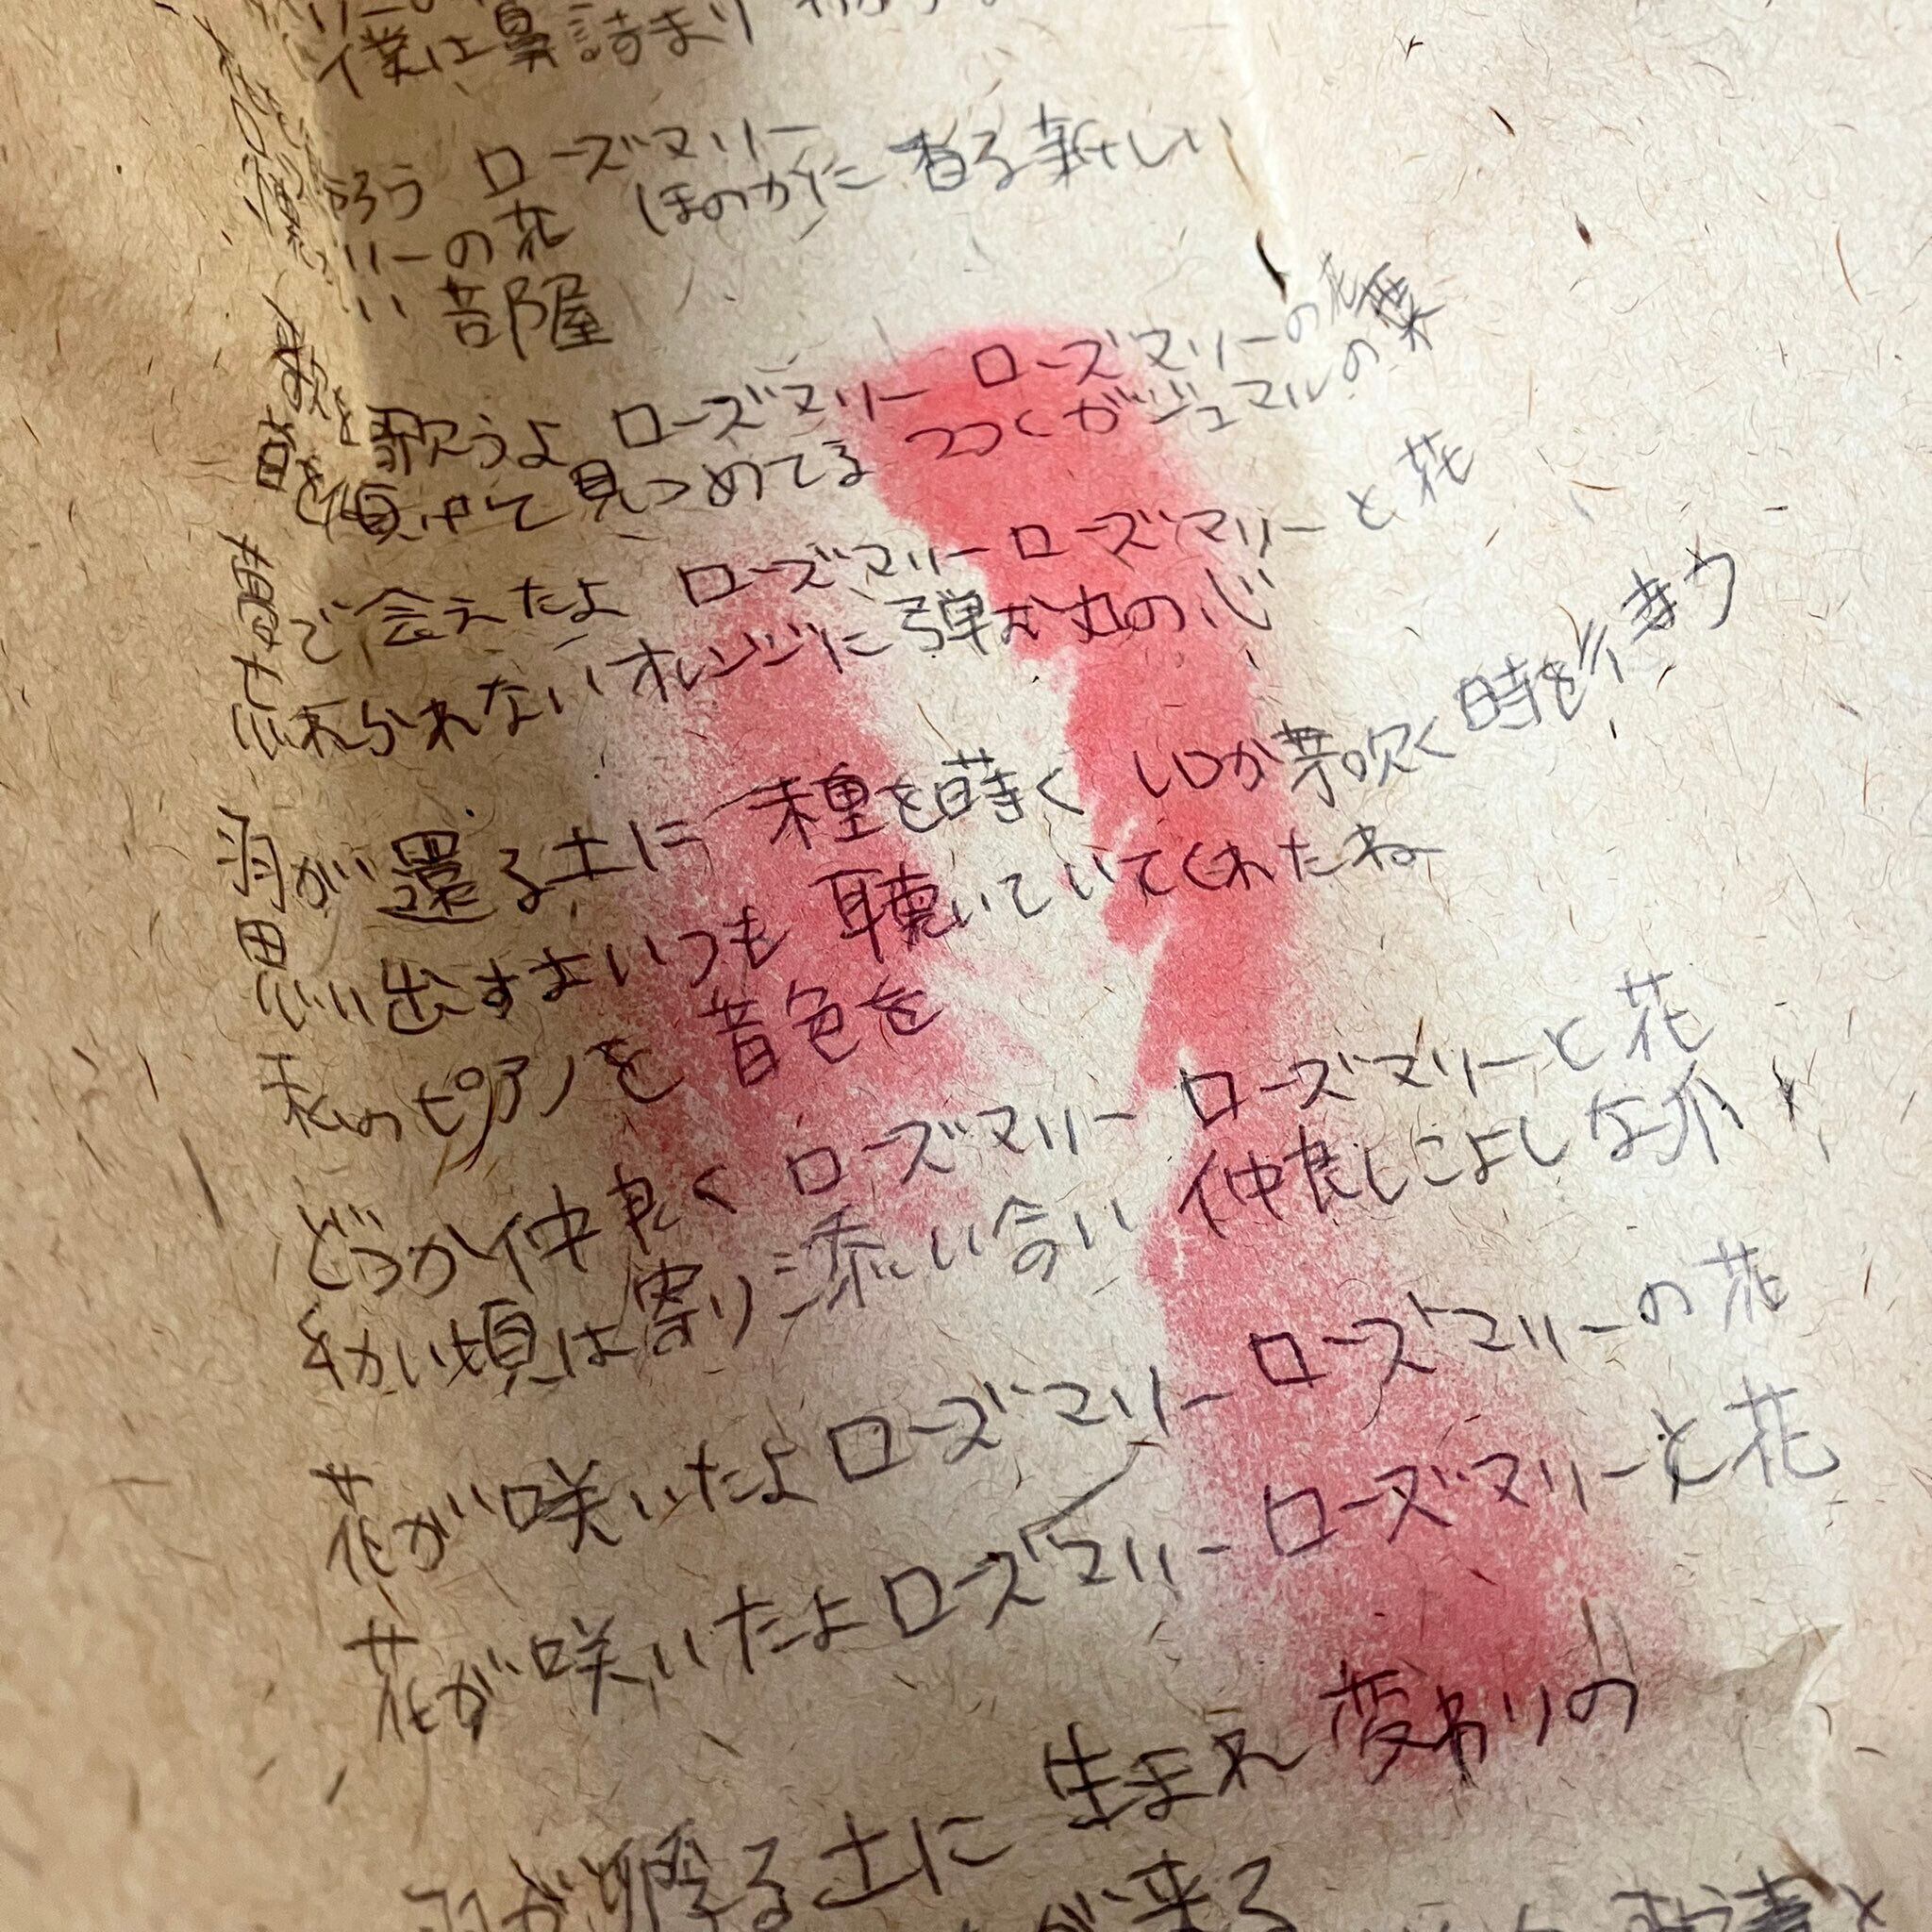 僕は鼻詰まり
ろう ローズマリー
リーの花 ほのかに香る新しい
い 部屋
歌を歌うよ ローズマリー ローズマリーの花
首を傾けて見つめてる つつくガジュマルの葉
夢で会えたよ ローズマリー ローズマリーと花
忘れられないオレンジに弾む丸の心
羽が還る土に 種を蒔く いつか芽吹く時を待つ
思い出すよいつも 聴いていてくれたね
私のピアノを 音色を
どうか仲良く ローズマリー ローズマリーと花
幼い頃は寄り添い合い 仲良しこよしな爪
花が咲いたよ ローズマリー ローズマリーの花
花が咲いたよ ローズマリー ローズマリーと花
羽が還る土に 生まれ変わりの
が来る